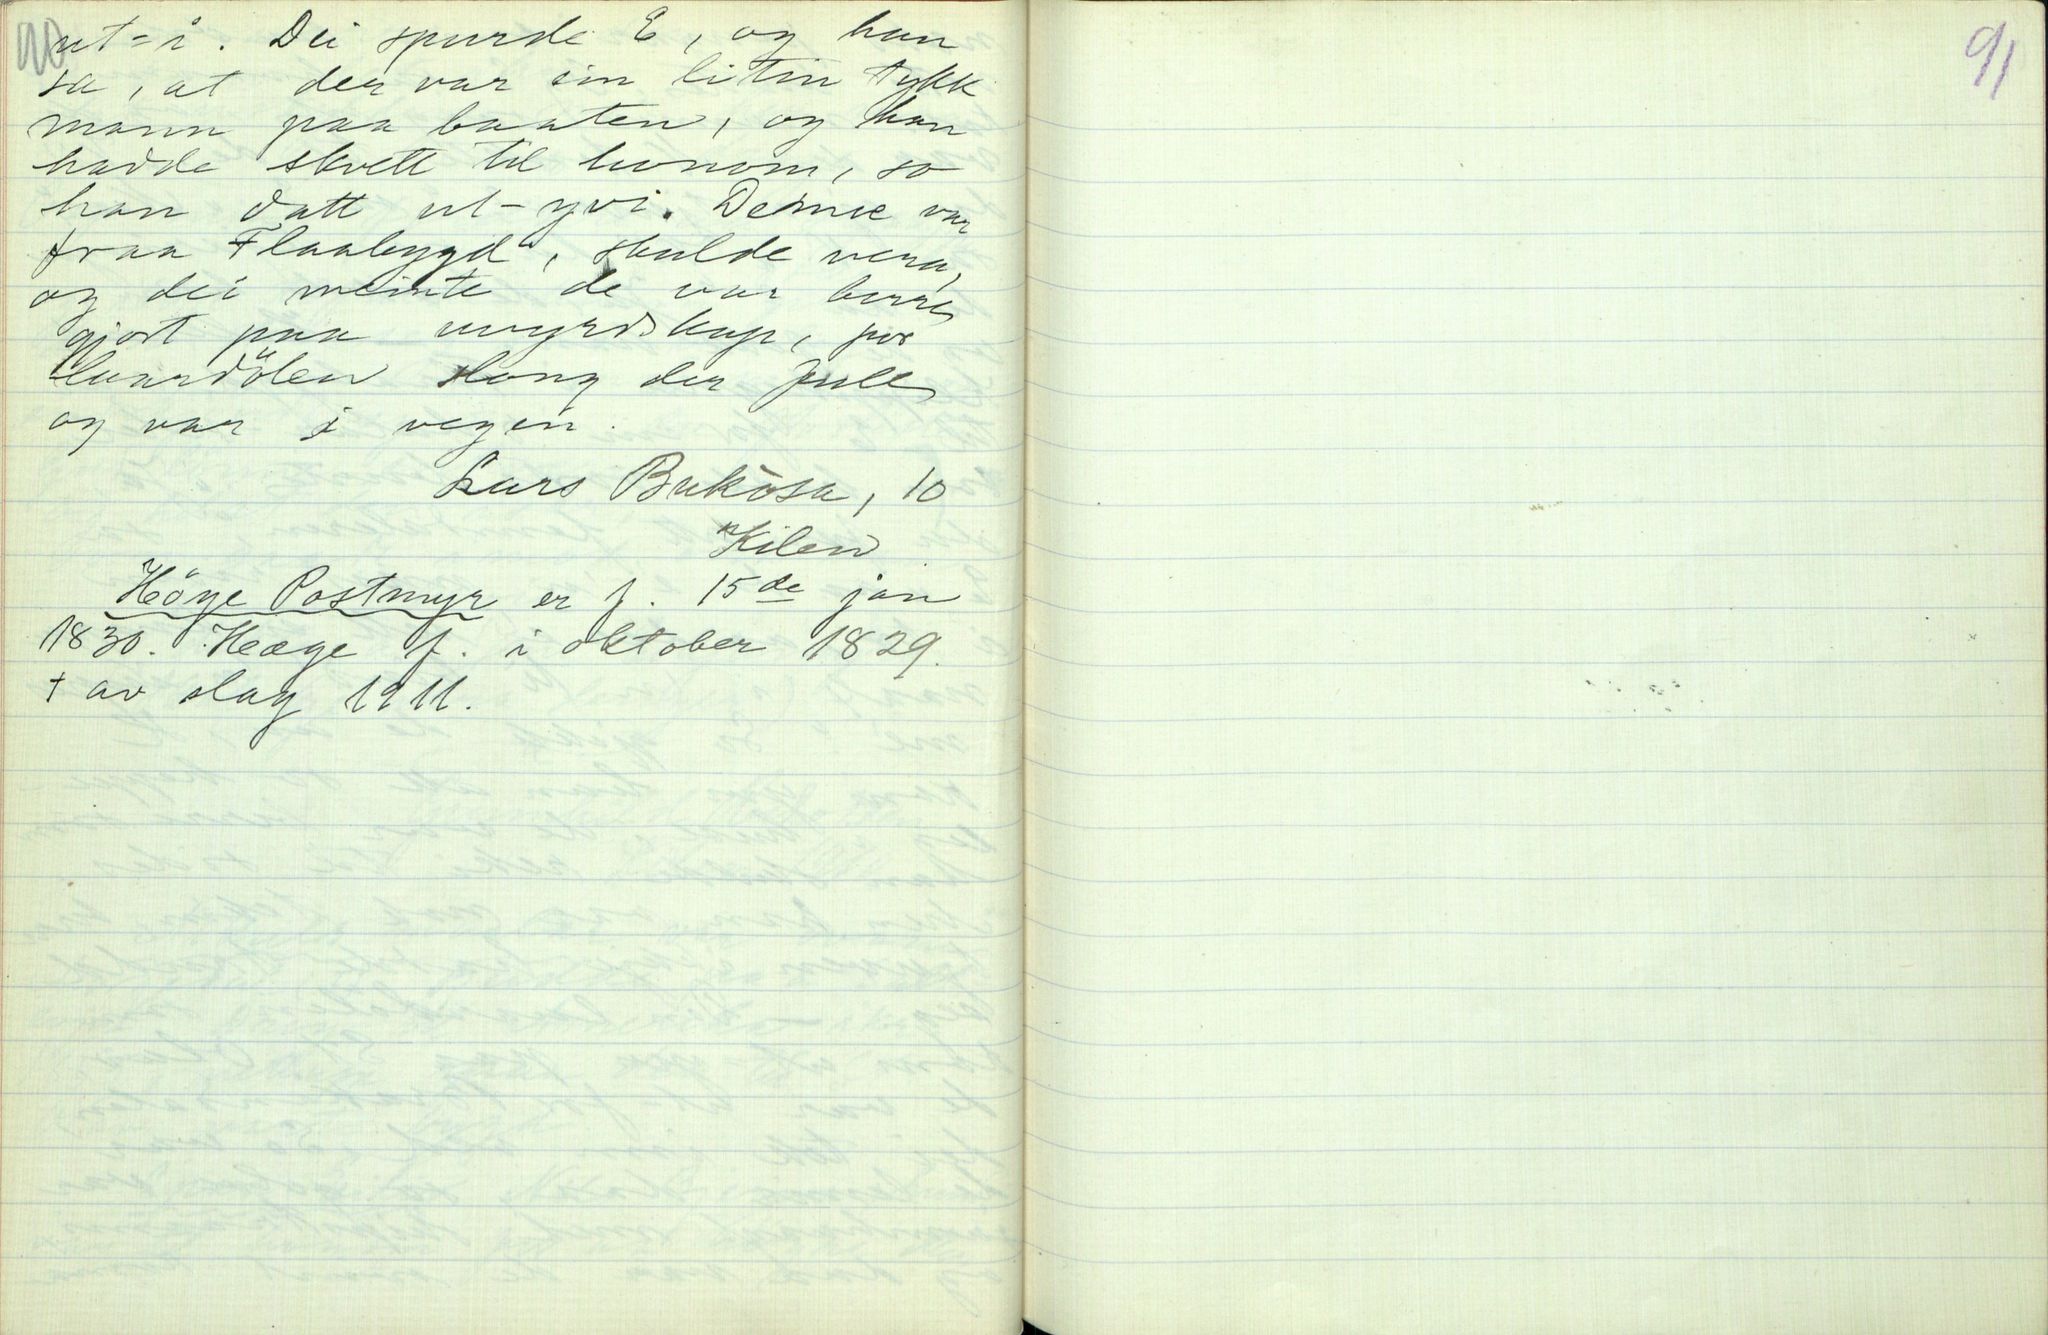 90
ut-i. Dei spurde E, og han
sa, at der var ein litin tykk
mann paa baaten, og han
hadde skvett til honom, so
han datt ut-yvi. Denne var
fraa Flaabygd, skulde vera,
og dei meinte de var berre
gjort paa uvyrdskap, for
luardölen slong der full
og var i vegen.
Lars Bukåsa, 10
Kilen
Höge Postmyr er f. 15de jan
1830. Hæge f. i oktober 1829.
† av slag 1911.
91